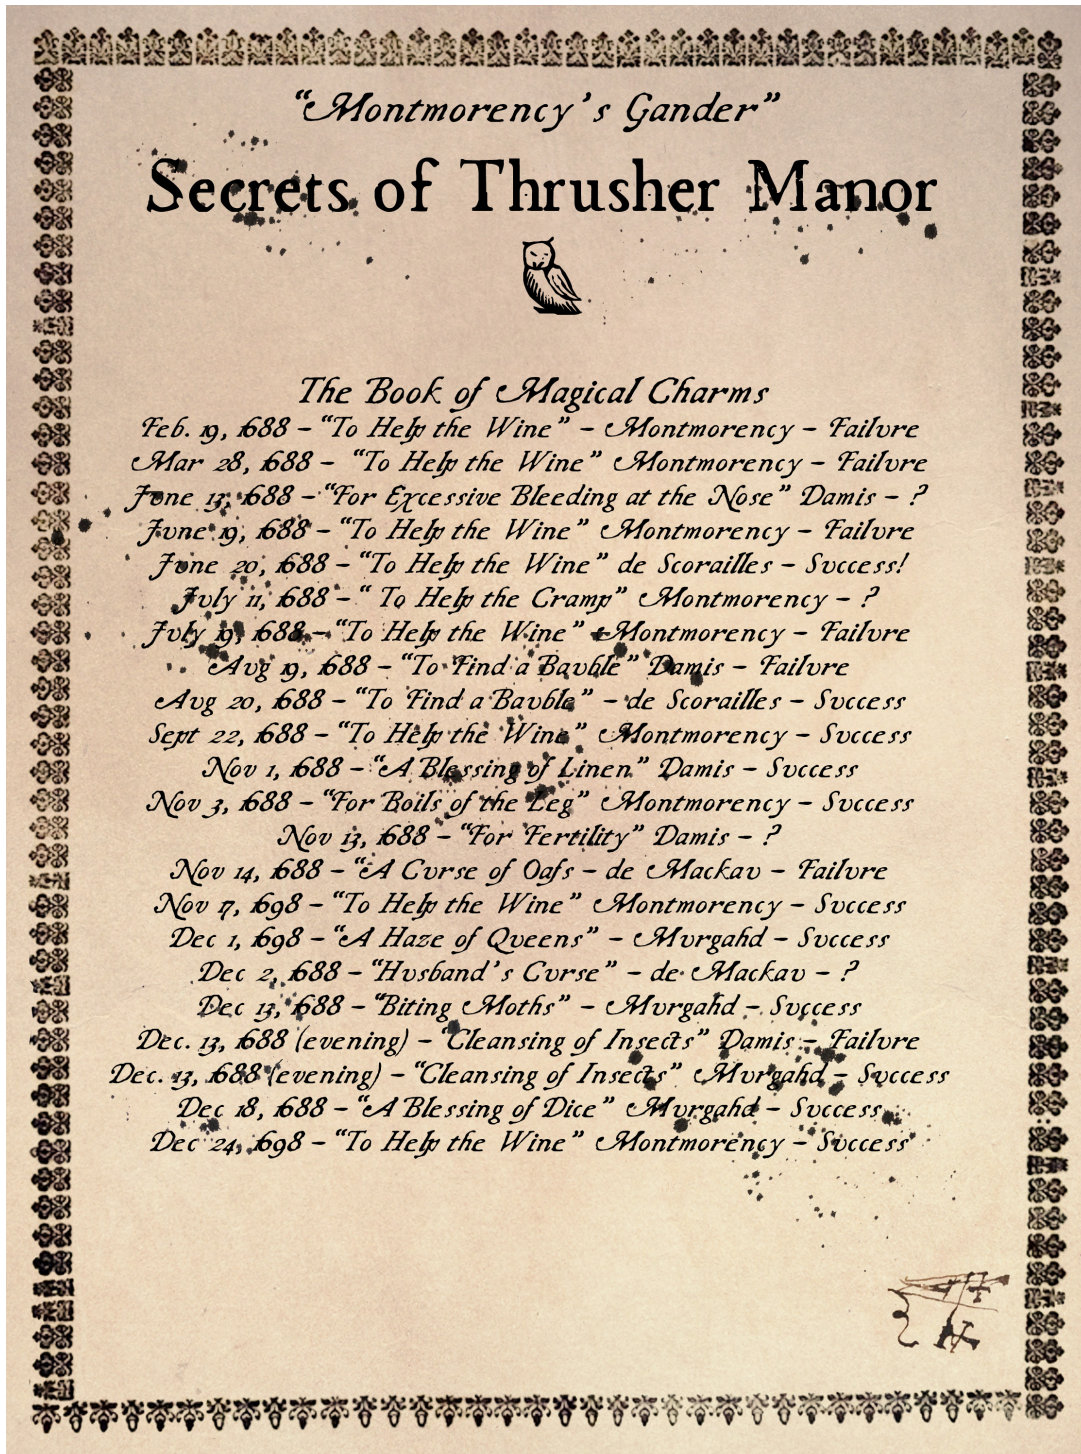 “Montmorency’s Gander”
Secrets of Thrusher Manor
The Book of Magical Charms
Feb. 19, 1688 – “To Help the Wine” – Montmorency – Failvre
Mar 28, 1688 – “To Help the Wine” Montmorency – Failvre
Jvne 13, 1688 – “For Excessive Bleeding at the Nose” Damis – ?
Jvne 19, 1688 – “To Help the Wine” Montmorency – Failvre
Jvne 20, 1688 – “To Help the Wine” de Scorailles – Svccess!
Jvly 11, 1688 – “ To Help the Cramp” Montmorency – ?
Jvly 19, 1688 – “To Help the Wine” Montmorency – Failvre
Avg 19, 1688 – “To Find a Bavble” Damis – Failvre
Avg 20, 1688 – “To Find a Bavble” – de Scorailles – Svccess
Sept 22, 1688 – “To Help the Wine” Montmorency – Svccess
Nov 1, 1688 – “A Blessing of Linen” Damis – Svccess
Nov 3, 1688 – “For Boils of the Leg” Montmorency – Svccess
Nov 13, 1688 – “For Fertility” Damis – ?
Nov 14, 1688 – “A Cvrse of Oafs – de Mackav – Failvre
Nov 17, 1698 – “To Help the Wine” Montmorency – Svccess
Dec 1, 1698 – “A Haze of Qveens” – Mvrgahd – Svccess
Dec 2, 1688 – “Hvsband’s Cvrse” – de Mackav – ?
Dec 13, 1688 – “Biting Moths” – Mvrgahd – Svccess
Dec. 13, 1688 (evening) – “Cleansing of Insects” Damis – Failvre
Dec. 13, 1688 (evening) – “Cleansing of Insects” Mvrgahd – Svccess
Dec 18, 1688 – “A Blessing of Dice” Mvrgahd – Svccess
Dec 24, 1698 – “To Help the Wine” Montmorency – Svccess